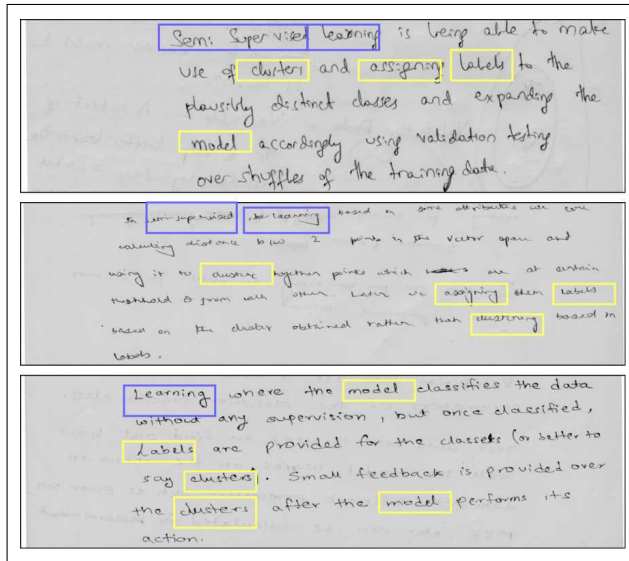 Semi Supervised Learning is being able to make
use of clusters and assigning labels to the
plausibly distinct classes and expanding the
model accordingly using validation testing
over shuffles of the training data.
In semi-supervised learning based on some attributes we are
calculating distance b/w 2 points in the vector space and
using it to cluster together points which are at certain
threshold θ from each other. Later we assigning them labels
based on the cluster obtained rather than clustering based on
labels.
Learning where the model classifies the data
without any supervision, but once classified,
Labels are provided for the classes (or better to
say clusters). Small feedback is provided over
the clusters after the model performs its
action.